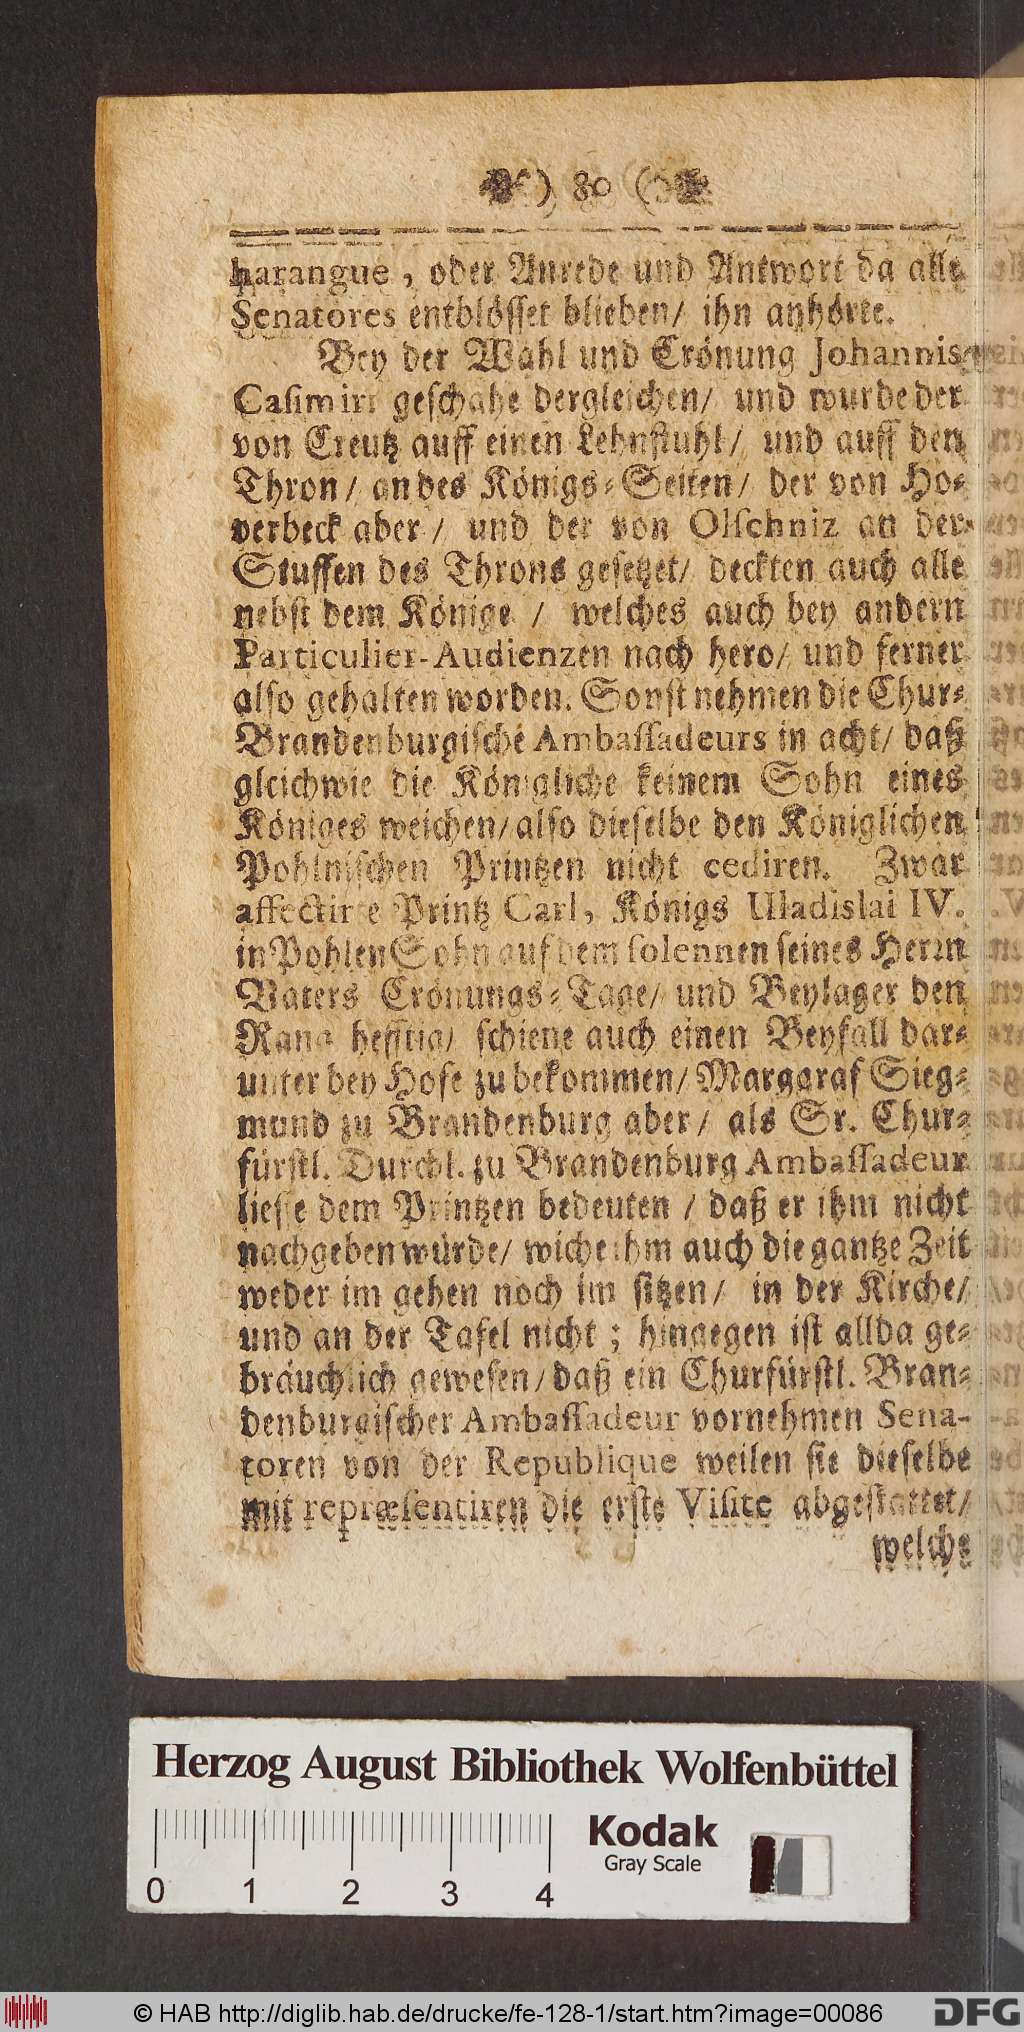 ) 80 (
harangue, oder Anrede und Antwort da alle
Senatores entblösset blieben/ ihn anhörte.
Bey der Wahl und Crönung Johannis
Casimiri geschahe dergleichen/ und wurde der
von Creutz auff einen Lehnstuhl/ und auff den
Thron/ an des Königs-Seiten/ der von Ho-
verbeck aber/ und der von Olschniz an der
Stuffen des Throns gesetzet/ deckten auch alle
nebst dem Könige / welches auch bey andern
Particulier-Audienzen nach hero/ und ferner
also gehalten worden. Sonst nehmen die Chur-
Brandenburgische Ambassadeurs in acht/ daß
gleichwie die Königliche keinem Sohn eines
Königes weichen/ also dieselbe den Königlichen
Pohlnischen Printzen nicht cediren. Zwar
affectirte Printz Carl, Königs Uladislai IV.
in Pohlen Sohn auf dem solennen seines Herrn
Vaters Crönungs-Tage/ und Beylager den
Rang hefftig/ schiene auch einen Beyfall dar-
unter bey Hofe zu bekommen/ Marggraf Sieg-
mund zu Brandenburg aber/ als Sr. Chur-
fürstl. Durchl. zu Brandenburg Ambassadeur
liesse dem Printzen bedeuten / daß er ihm nicht
nachgeben würde/ wiche ihm auch die gantze Zeit
weder im gehen noch im sitzen/ in der Kirche/
und an der Tafel nicht; hingegen ist allda ge-
bräuchlich gewesen/ daß ein Churfürstl. Bran-
denburgischer Ambassadeur vornehmen Sena-
toren von der Republique weilen sie dieselbe
mit repræsentiren die erste Visite abgestattet/
welche
Herzog August Bibliothek Wolfenbüttel
Kodak
Gray Scale
0 1 2 3 4
© HAB http://diglib.hab.de/drucke/fe-128-1/start.htm?image=00086
DFG